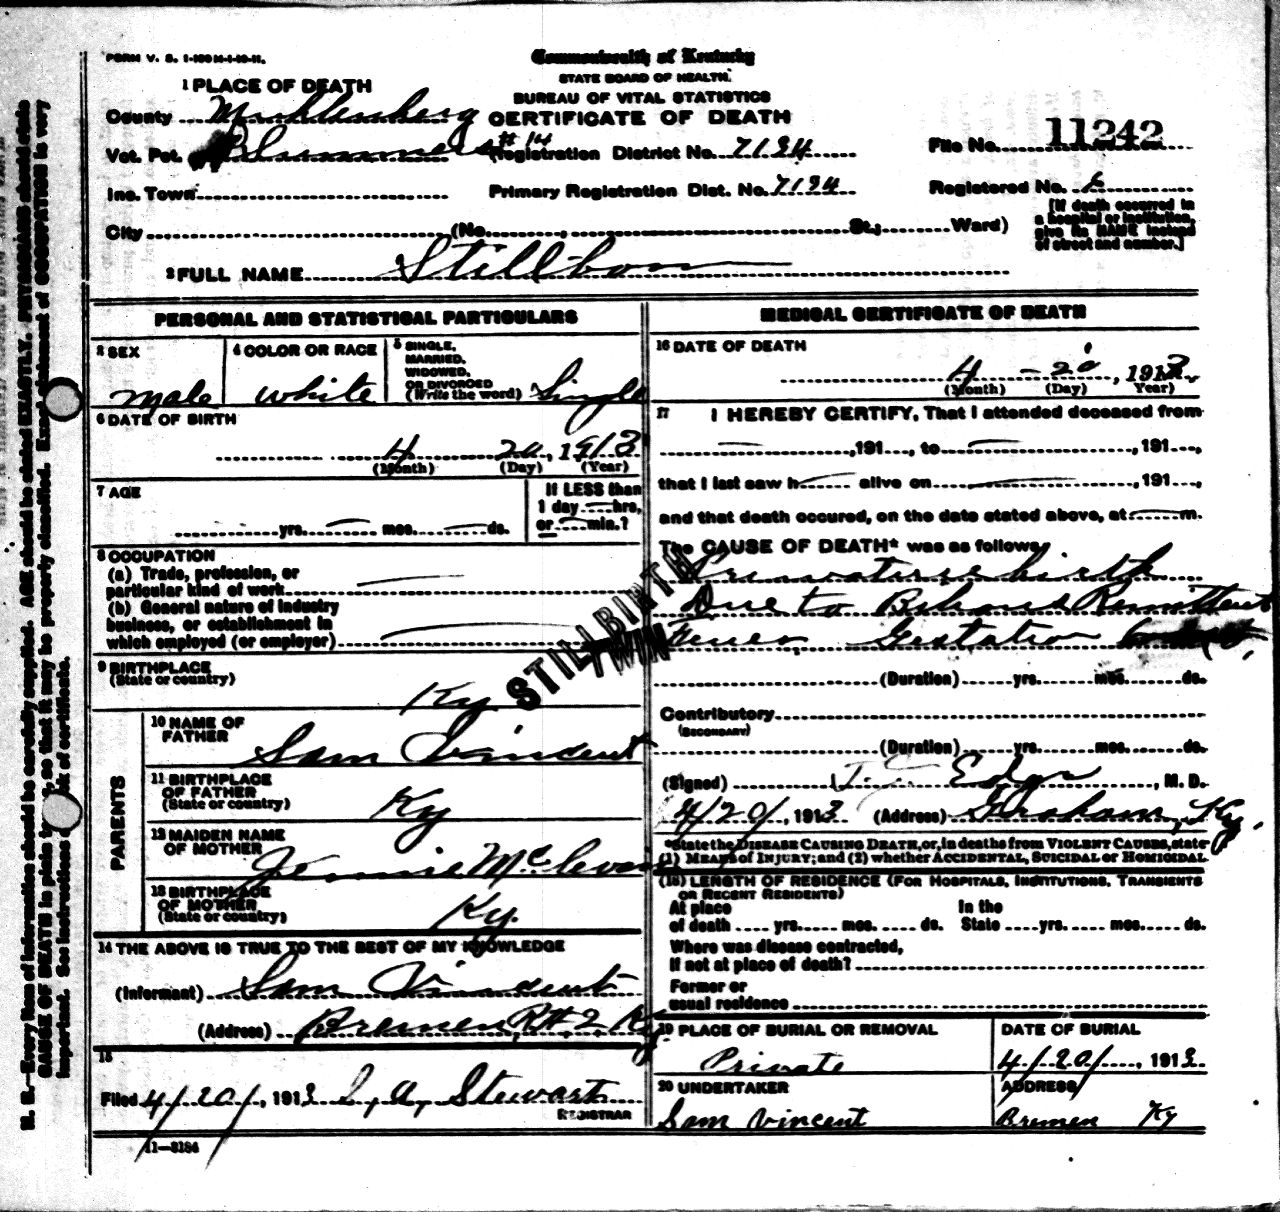 FORM V. S. 1-100 M-1-10-11.
Commonwealth of Kentucky
STATE BOARD OF HEALTH.
BUREAU OF VITAL STATISTICS
CERTIFICATE OF DEATH
1 PLACE OF DEATH
County Muhlenberg
Vot. Pct. #14 Registration District No. 7134 File No. 11242
Inc. Town Primary Registration Dist. No. 7134 Registered No.
[If death occurred in a hospital or institution, give its NAME instead of street and number.]
City (No. , St.; Ward)
2 FULL NAME Stillborn
PERSONAL AND STATISTICAL PARTICULARS
3 SEX male
4 COLOR OR RACE white
5 SINGLE, MARRIED, WIDOWED, OR DIVORCED (Write the word) Single
6 DATE OF BIRTH
4 20, 1913
(Month) (Day) (Year)
7 AGE
yrs. mos. ds.
If LESS than 1 day hrs. or min.?
8 OCCUPATION
(a) Trade, profession, or particular kind of work
(b) General nature of industry business, or establishment in which employed (or employer)
9 BIRTHPLACE
(State or country)
Ky
PARENTS
10 NAME OF FATHER Sam Vincent
11 BIRTHPLACE OF FATHER (State or country) Ky
12 MAIDEN NAME OF MOTHER Jennie
13 BIRTHPLACE OF MOTHER (State or country) Ky.
14 THE ABOVE IS TRUE TO THE BEST OF MY KNOWLEDGE
(Informant) Sam Vincent
(Address) Bremen R#2 Ky
15
Filed 4/20/, 1913 Stewart
REGISTRAR
11—3184
STILLBIRTH
TWIN
MEDICAL CERTIFICATE OF DEATH
16 DATE OF DEATH
4 - 20, 1913
(Month) (Day) Year)
17 I HEREBY CERTIFY, That I attended deceased from
,191 , to ,191 ,
that I last saw h alive on ,191 ,
and that death occured, on the date stated above, at m.
The CAUSE OF DEATH* was as follows:
Premature birth
Due to Remittent
Fever. Gestation
(Duration) yrs. mos. ds.
Contributory
(SECONDARY)
(Duration) yrs. mos. ds.
(Signed) , M. D.
4/20/, 1913 (Address) Graham, Ky.
*State the DISEASE CAUSING DEATH, or, in deaths from VIOLENT CAUSES, state
(1) MEANS of INJURY; and (2) whether ACCIDENTAL, SUICIDAL or HOMICIDAL
(18) LENGTH OF RESIDENCE (FOR HOSPITALS, INSTITUTIONS, TRANSIENTS OR RECENT RESIDENTS)
At place of death yrs. mos. ds. In the State yrs. mos. ds.
Where was disease contracted,
If not at place of death?
Former or
usual residence
19 PLACE OF BURIAL OR REMOVAL
Private
DATE OF BURIAL
4/20/, 1913
20 UNDERTAKER
Sam Vincent
ADDRESS
Bremen Ky
N. B.—Every item of information should be carefully supplied. AGE should be stated EXACTLY. PHYSICIANS should state
CAUSE OF DEATH in plain , so that it may be properly classified. Exact statement of OCCUPATION is very
important. See instructions of certificate.